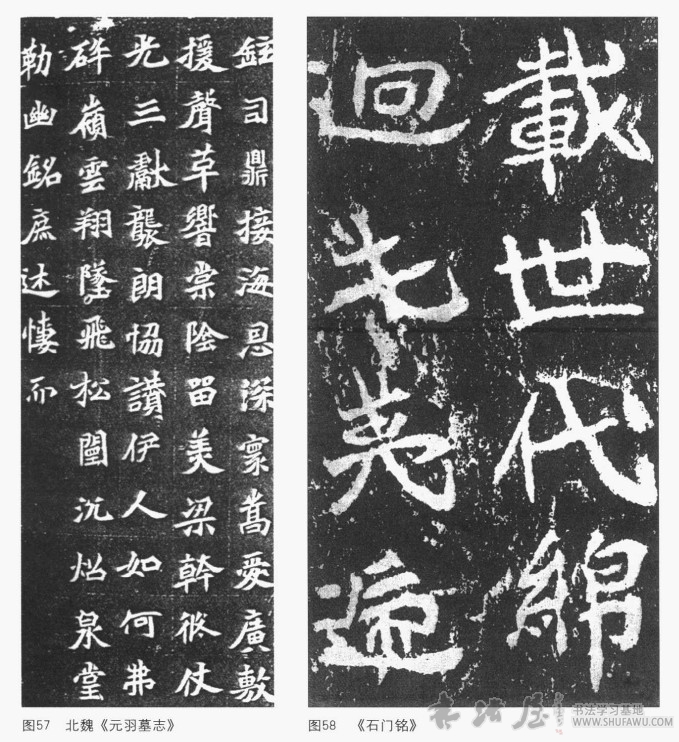 鉉司鼎接海恩深愛廣敷
援聲草響棠陰留美梁幹仗
光三獻襲朗協讚伊人如何弗
碎嶺雲翔墜飛松闉沉炤泉堂
勒幽銘庶述悽而
載世代綿
迴戎夷遞
图57 北魏《元羽墓志》
图58 《石门铭》
书法学习基地
WWW.SHUFAWU.COM